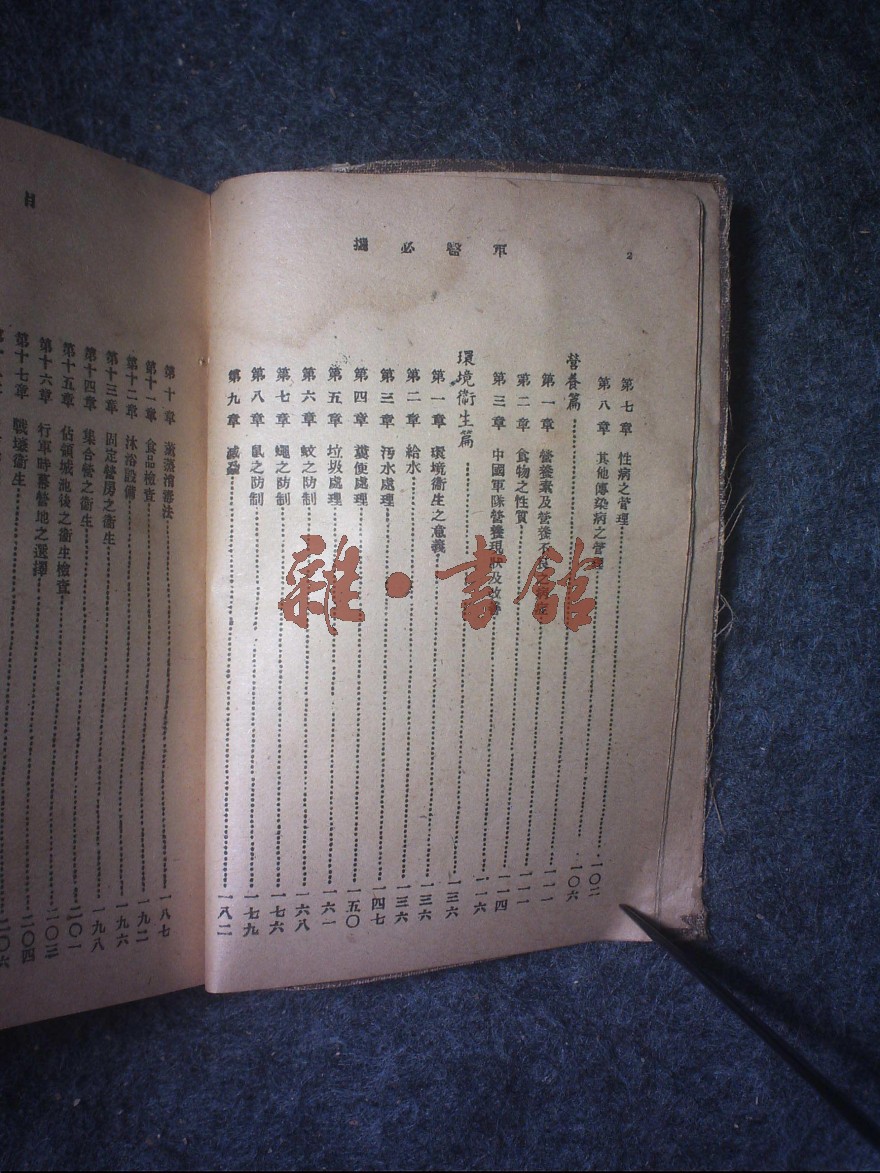 軍醫必攜
2
第七章 性病之管理……一〇二
第八章 其他傳染病之管理……一〇六
營養篇……一一一
第一章 營養素及營養不良之……一一一
第二章 食物之性質……一一四
第三章 中國軍隊營養現狀及改善……一一六
環境衞生篇……一三六
第一章 環境衞生之意義……一三六
第二章 給水……一三六
第三章 汚水處理……一四七
第四章 糞便處理……一五〇
第五章 垃圾處理……一六一
第六章 蚊之防制……一六八
第七章 蠅之防制……一七六
第八章 鼠之防制……一七九
第九章 滅蝨……一八二
目
第十章……一八七
第十一章 食品檢查……一九二
第十二章 沐浴設備……一九六
第十三章 固定營房之衞生……一九八
第十四章 集合營之衞生……二〇一
第十五章 佔領城池後之衞生檢查……二〇三
第十六章 行軍時幕營地之選擇……二〇四
第十七章 戰壕衞生……二〇六
雜·書館